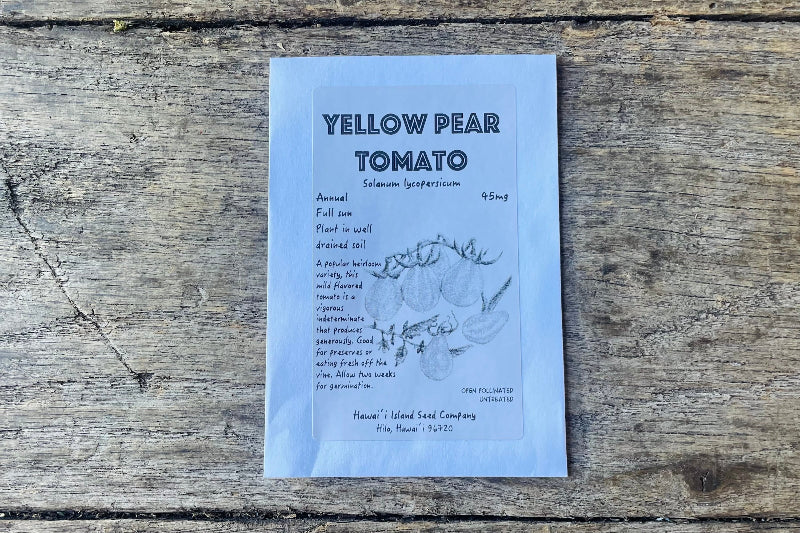 YELLOW PEAR
TOMATO
Solanum lycopersicum
Annual 45mg
Full sun
Plant in well
drained soil
A popular heirloom
variety, this
mild flavored
tomato is a
vigorous
indeterminate
that produces
generously. Good
for preserves or
eating fresh off the
vine. Allow two weeks
for germination.
OPEN POLLINATED
UNTREATED
Hawai'i Island Seed Company
Hilo, Hawai'i 96720